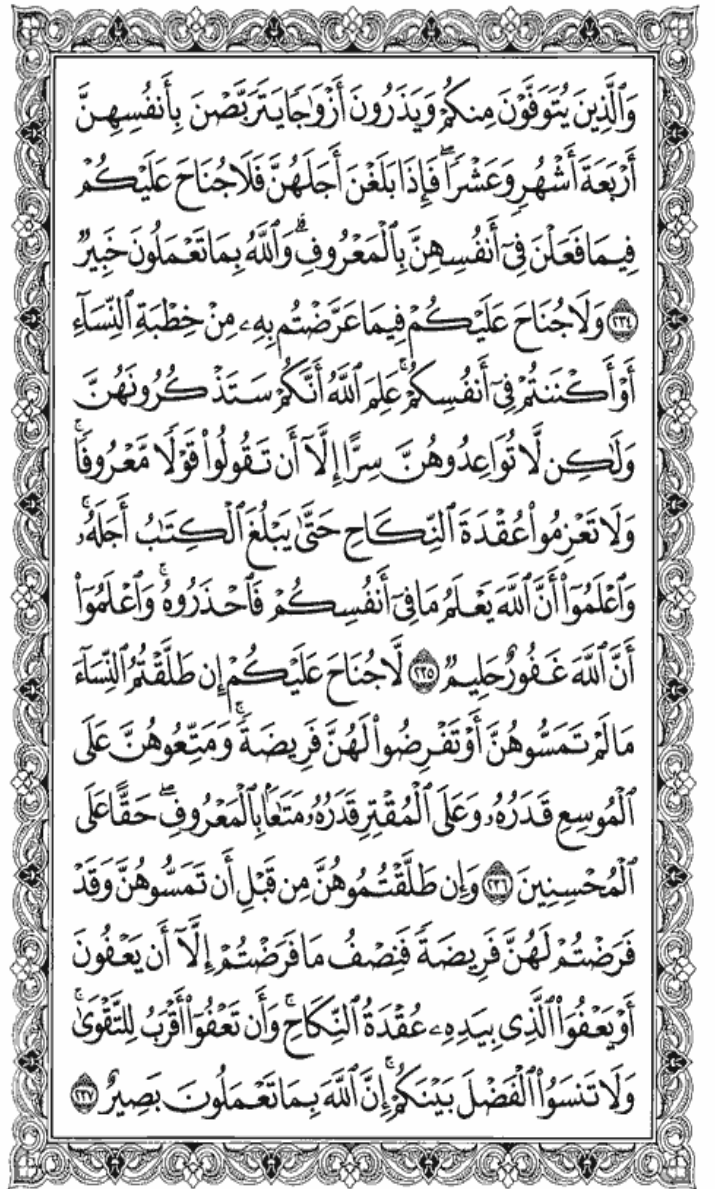 وَٱلَّذِينَ يُتَوَفَّوْنَ مِنكُمْ وَيَذَرُونَ أَزْوَٰجًا يَتَرَبَّصْنَ بِأَنفُسِهِنَّ
أَرْبَعَةَ أَشْهُرٍ وَعَشْرًا ۖ فَإِذَا بَلَغْنَ أَجَلَهُنَّ فَلَا جُنَاحَ عَلَيْكُمْ
فِيمَا فَعَلْنَ فِىٓ أَنفُسِهِنَّ بِٱلْمَعْرُوفِ ۗ وَٱللَّهُ بِمَا تَعْمَلُونَ خَبِيرٌ
٢٣٤ وَلَا جُنَاحَ عَلَيْكُمْ فِيمَا عَرَّضْتُم بِهِۦ مِنْ خِطْبَةِ ٱلنِّسَآءِ
أَوْ أَكْنَنتُمْ فِىٓ أَنفُسِكُمْ ۚ عَلِمَ ٱللَّهُ أَنَّكُمْ سَتَذْكُرُونَهُنَّ
وَلَٰكِن لَّا تُوَاعِدُوهُنَّ سِرًّا إِلَّآ أَن تَقُولُوا۟ قَوْلًا مَّعْرُوفًا ۚ
وَلَا تَعْزِمُوا۟ عُقْدَةَ ٱلنِّكَاحِ حَتَّىٰ يَبْلُغَ ٱلْكِتَٰبُ أَجَلَهُۥ ۚ
وَٱعْلَمُوٓا۟ أَنَّ ٱللَّهَ يَعْلَمُ مَا فِىٓ أَنفُسِكُمْ فَٱحْذَرُوهُ ۚ وَٱعْلَمُوٓا۟
أَنَّ ٱللَّهَ غَفُورٌ حَلِيمٌ ٢٣٥ لَّا جُنَاحَ عَلَيْكُمْ إِن طَلَّقْتُمُ ٱلنِّسَآءَ
مَا لَمْ تَمَسُّوهُنَّ أَوْ تَفْرِضُوا۟ لَهُنَّ فَرِيضَةً ۚ وَمَتِّعُوهُنَّ عَلَى
ٱلْمُوسِعِ قَدَرُهُۥ وَعَلَى ٱلْمُقْتِرِ قَدَرُهُۥ مَتَٰعًۢا بِٱلْمَعْرُوفِ ۖ حَقًّا عَلَى
ٱلْمُحْسِنِينَ ٢٣٦ وَإِن طَلَّقْتُمُوهُنَّ مِن قَبْلِ أَن تَمَسُّوهُنَّ وَقَدْ
فَرَضْتُمْ لَهُنَّ فَرِيضَةً فَنِصْفُ مَا فَرَضْتُمْ إِلَّآ أَن يَعْفُونَ
أَوْ يَعْفُوَا۟ ٱلَّذِى بِيَدِهِۦ عُقْدَةُ ٱلنِّكَاحِ ۚ وَأَن تَعْفُوٓا۟ أَقْرَبُ لِلتَّقْوَىٰ ۚ
وَلَا تَنسَوُا۟ ٱلْفَضْلَ بَيْنَكُمْ ۚ إِنَّ ٱللَّهَ بِمَا تَعْمَلُونَ بَصِيرٌ ٢٣٧